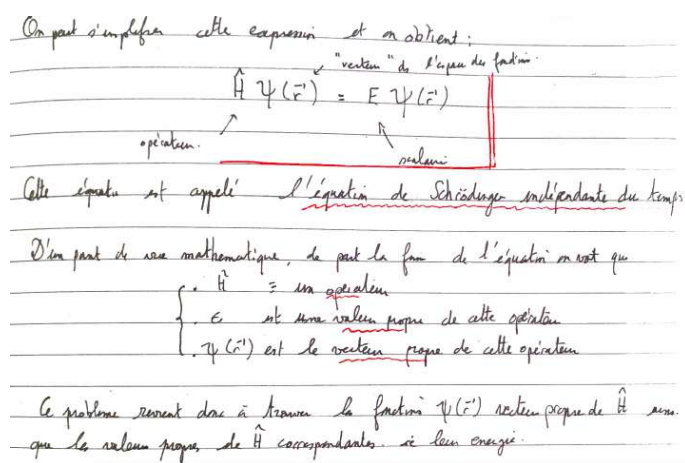 On peut simplifier cette expression et on obtient :
"vecteur" de l'espace des fonctions.
Ĥ Ψ(r⃗) = E Ψ(r⃗)
opérateur.
scalaire
Cette équation est appelé l'équation de Schrödinger indépendante du temps
D'un point de vue mathématique, de part la forme de l'équation on voit que
. Ĥ ≡ un opérateur
. E est une valeur propre de cette opérateur
. Ψ(r⃗) est le vecteur propre de cette opérateur
Ce problème revient donc à trouver la fonction Ψ(r⃗) vecteur propre de Ĥ
que les valeurs propres de Ĥ correspondantes. ie leur energie.